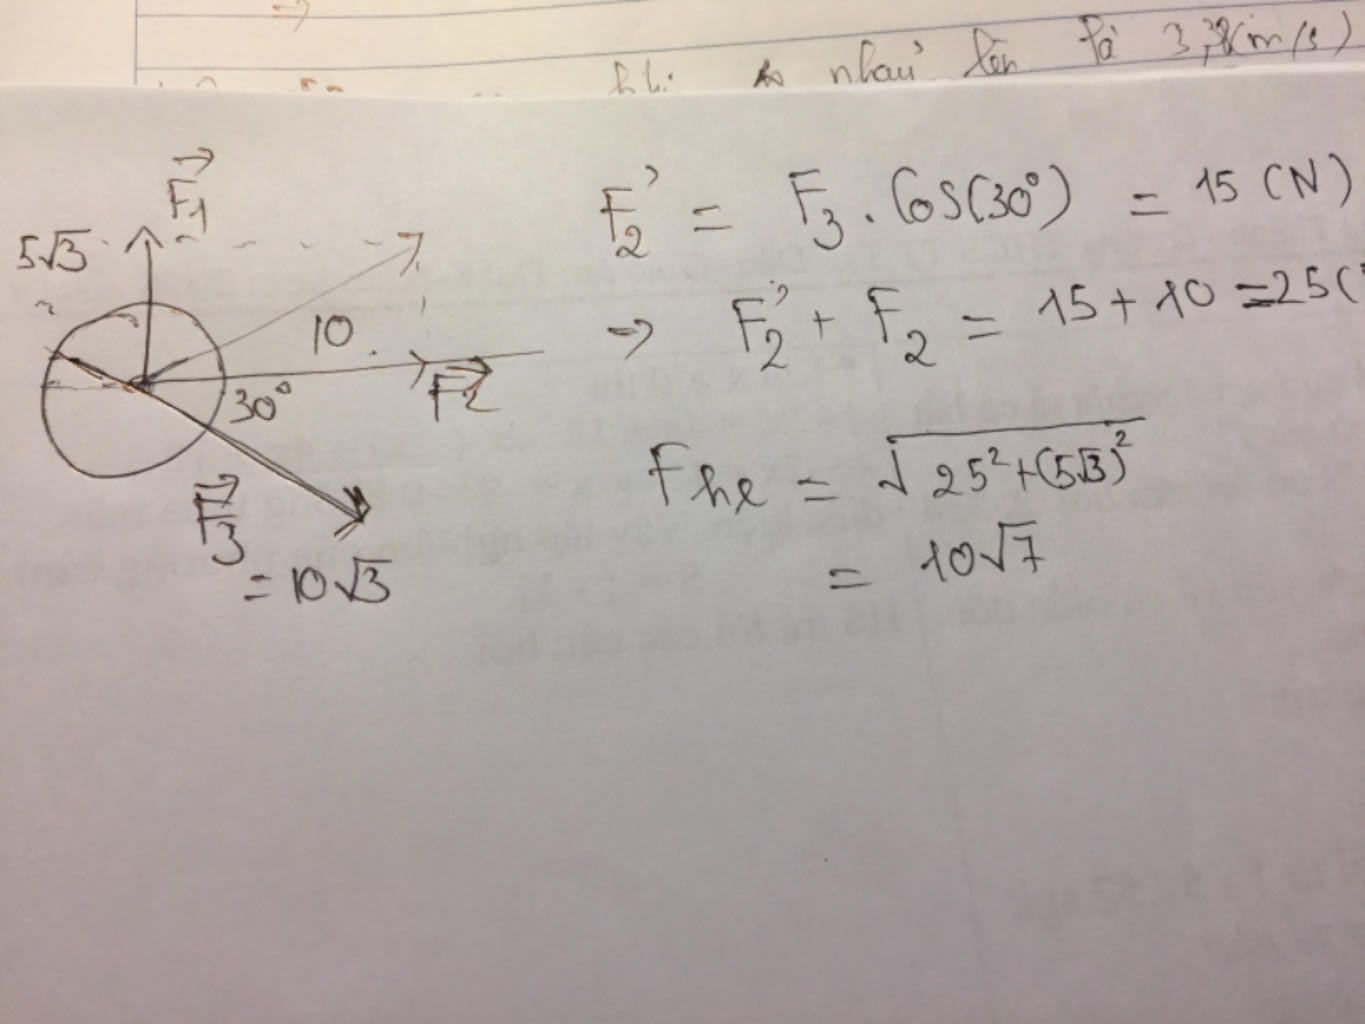 nhau lên là
F₁
5√3
10
F₂
30°
F₃
= 10√3
F₂' = F₃ . Cos(30°) = 15 (N)
→ F₂' + F₂ = 15 + 10 = 25(
Fhl = √(25² + (5√3)²)
= 10√7